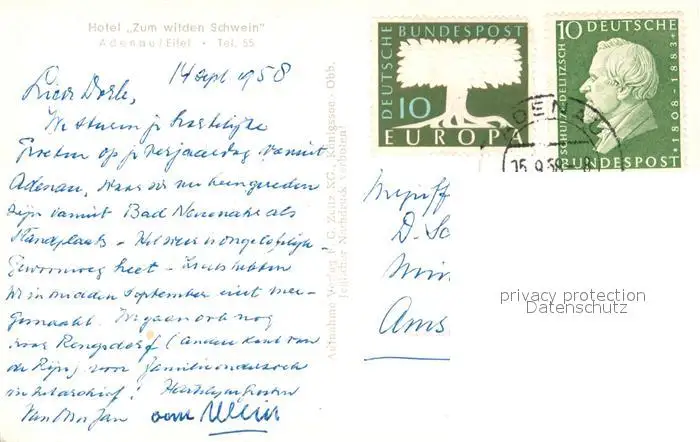 Hotel „Zum wilden Schwein"
Adenau/Eifel • Tel. 55
14 Sept 1958
Lieve Dorle,
We sturen je hartelijke
Groeten op je verjaardag vanuit
Adenau, waar we nu heen gereden
zijn vanuit Bad Neuenahr als
standplaats – Het weer is ongelofelijk –
Gewoonweg heet – Zoiets hebben
we in midden September niet mee-
gemaakt. We gaan ook nog
naar Rengsdorf (andere kant van
de Rijn) voor familieonderzoek
in het archief! Hartelijke groeten
van Jan
Aufnahme Verlag P. G. Zeitz KG., Königssee - Obb.
Jeglicher Nachdruck verboten!
DEUTSCHE BUNDESPOST
10
EUROPA
10 DEUTSCHE
SCHULZE-DELITZSCH
* 1808 - 1883 +
BUNDESPOST
ADENAU
15.9.58
D. Sc
Ams
privacy protection
Datenschutz